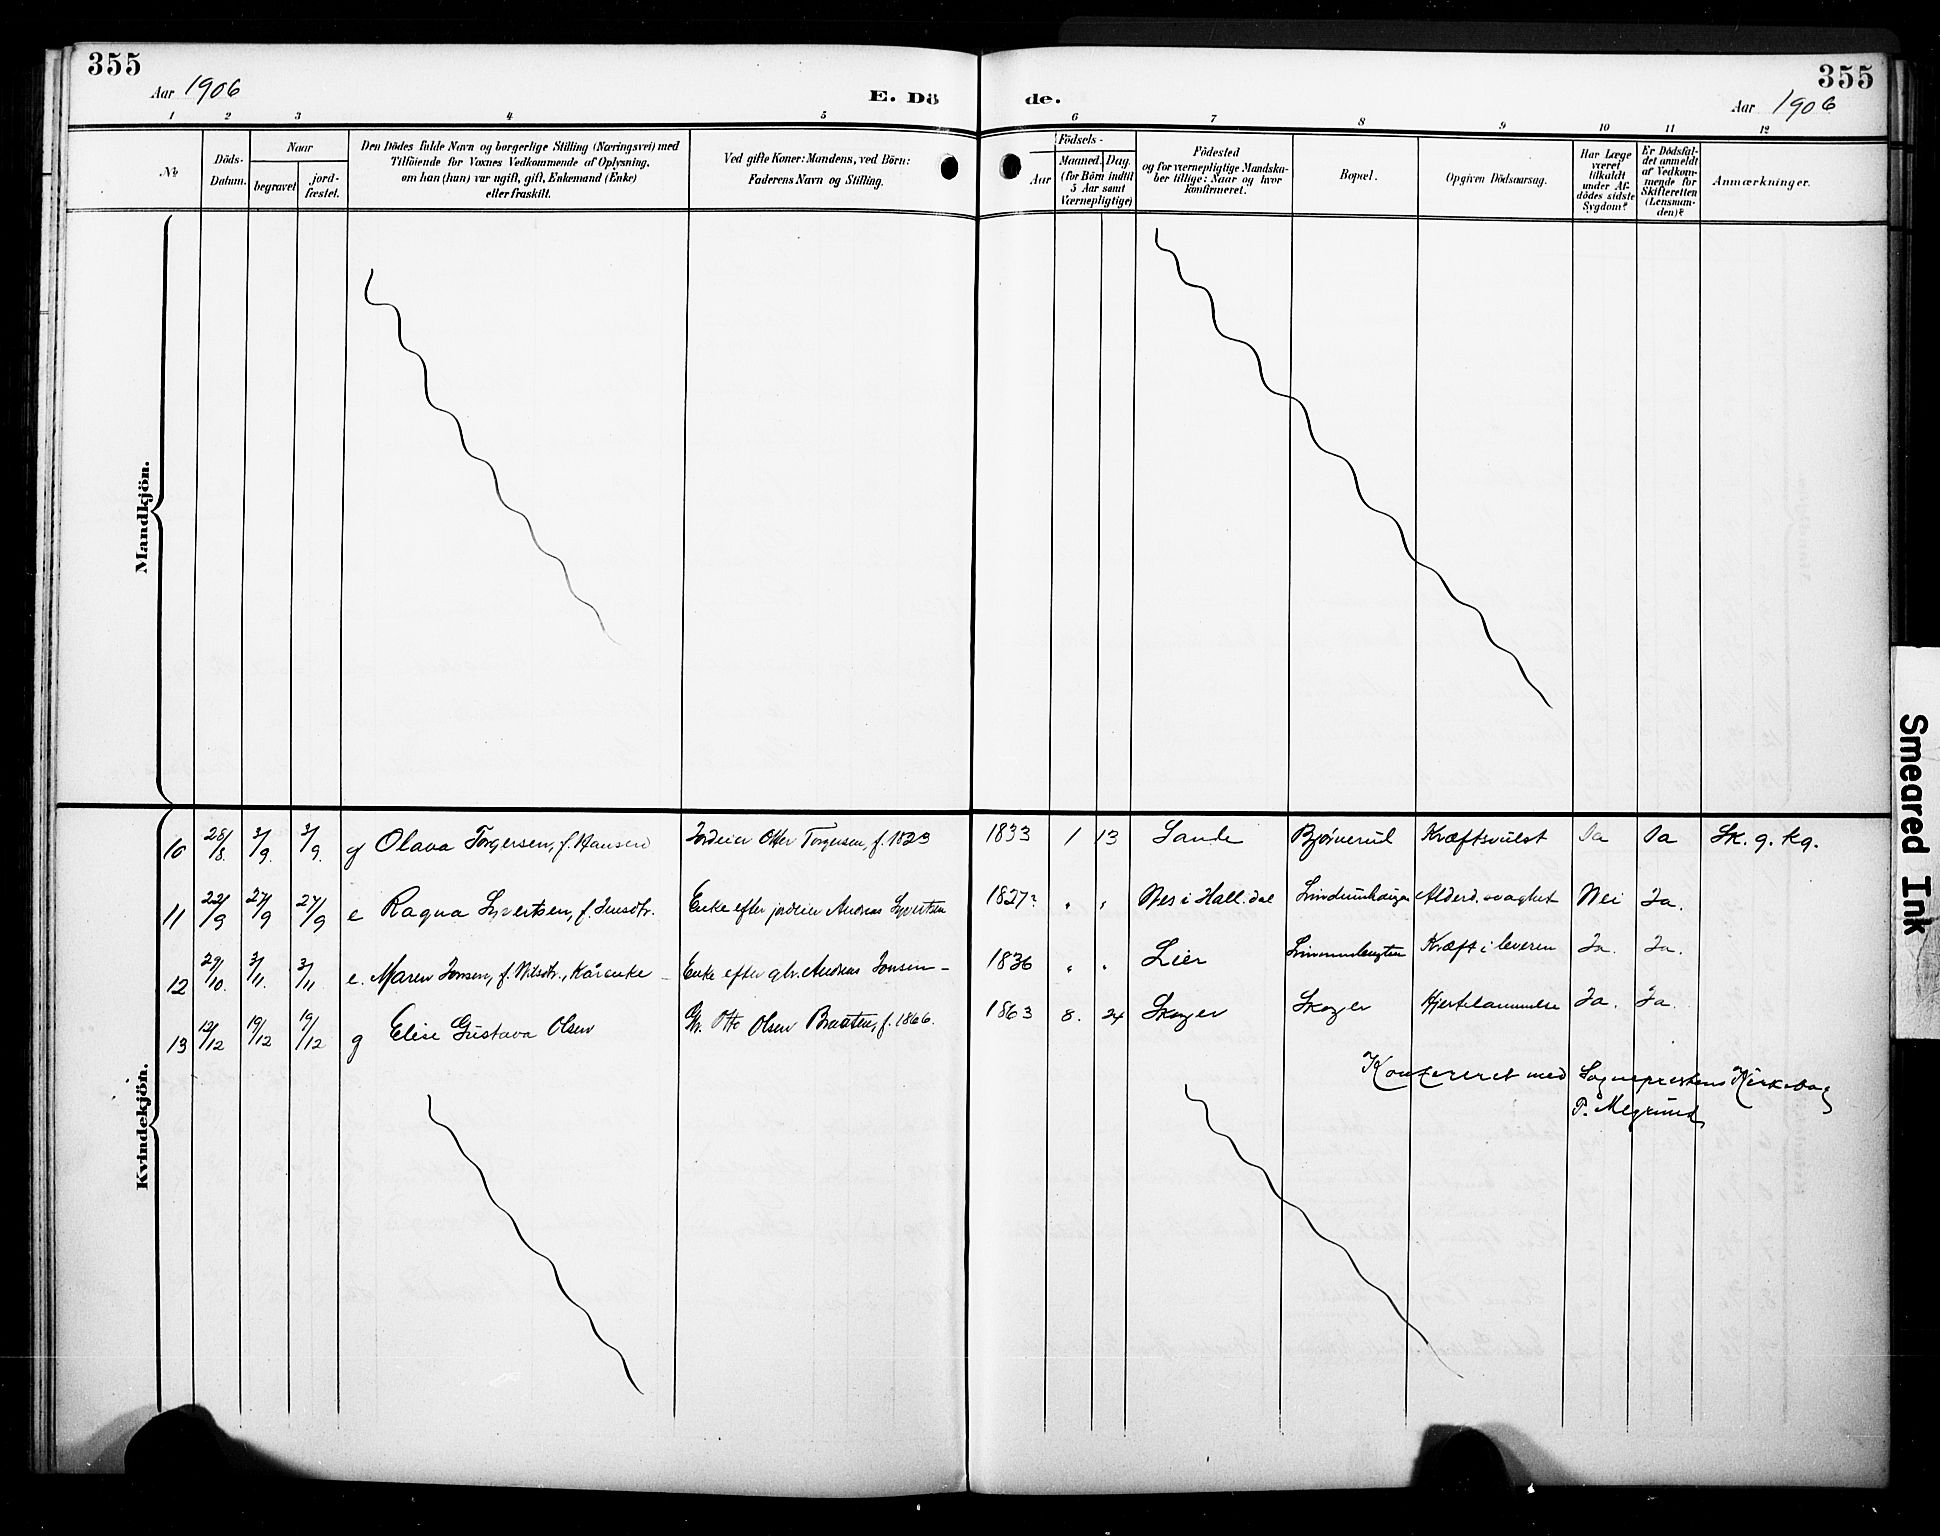 355
355
Aar 1906
E. Dö
de.
Aar 1906
1 2 3 4 5 6 7 8 9 10 11 12
No
Döds-
Datum.
Naar
begravet
jord-
fæstet.
Den Dödes fulde Navn og borgerlige Stilling (Næringsvei) med
Tilföiende for Voxnes Vedkommende af Oplysning,
om han (hun) var ugift, gift, Enkemand (Enke)
eller fraskilt.
Ved gifte Koner: Mandens, ved Börn:
Faderens Navn og Stilling.
Födsels-
Aar
Maaned.
Dag.
(for Börn indtil
5 Aar samt
Værnepligtige)
Födested
og for værnepligtige Mandska-
ber tillige: Naar og hvor
konfirmeret.
Bopæl.
Opgiven Dödsaarsag.
Har Læge
været
tilkaldt
under Af-
dödes sidste
Sygdom?
Er Dödsfal-
det anmeldt
af Vedkom-
mende for
Skifteretten
(Lensman-
den)?
Anmærkninger.
Mandkjön.
Kvindekjön.
10 28/8. 3/9. 3/9. g Olava Torgersen, f. Hansen Torgersen, f. 1823 1833 1 13 Sande Bjørnerud Kræftsvulst Ja Ja Sk. g. kg.
11 22/9 27/9 27/9 e Ragna Syvertsen, f. Enke efter Andreas Syvertsen 1827? " " Nes i Hall.dal Alderd.svaghet Nei Ja.
12 29/10. 3/11. 3/11 e. Maren Jonsen, f. Nilsdtr., Kårenke Enke efter Andreas Jonsen 1836 " " Lier Kræft i leveren Ja. Ja.
13 12/12 19/12 19/12 g Elise Gustava Olsen Otto Olsen Braaten, f. 1866. 1863 8. 24 Skoger Skoger Hjertelammelse Ja. Ja.
med Sogneprestens Kirkebog
Smeared Ink